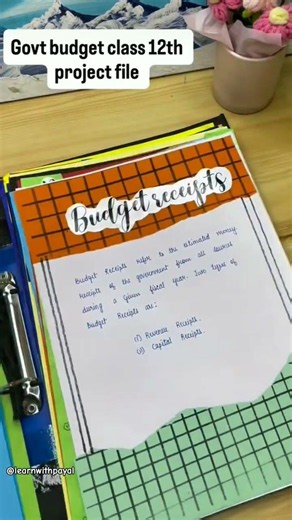 Govt budget class 12th
project file
Budget receipts
Budget Receipts refer to the estimated money
receipts of the government from all sources
during a given fiscal year. Two types of
Budget Receipts are:
(1) Revenue Receipts.
(2) Capital Receipts.
@learnwithpayal